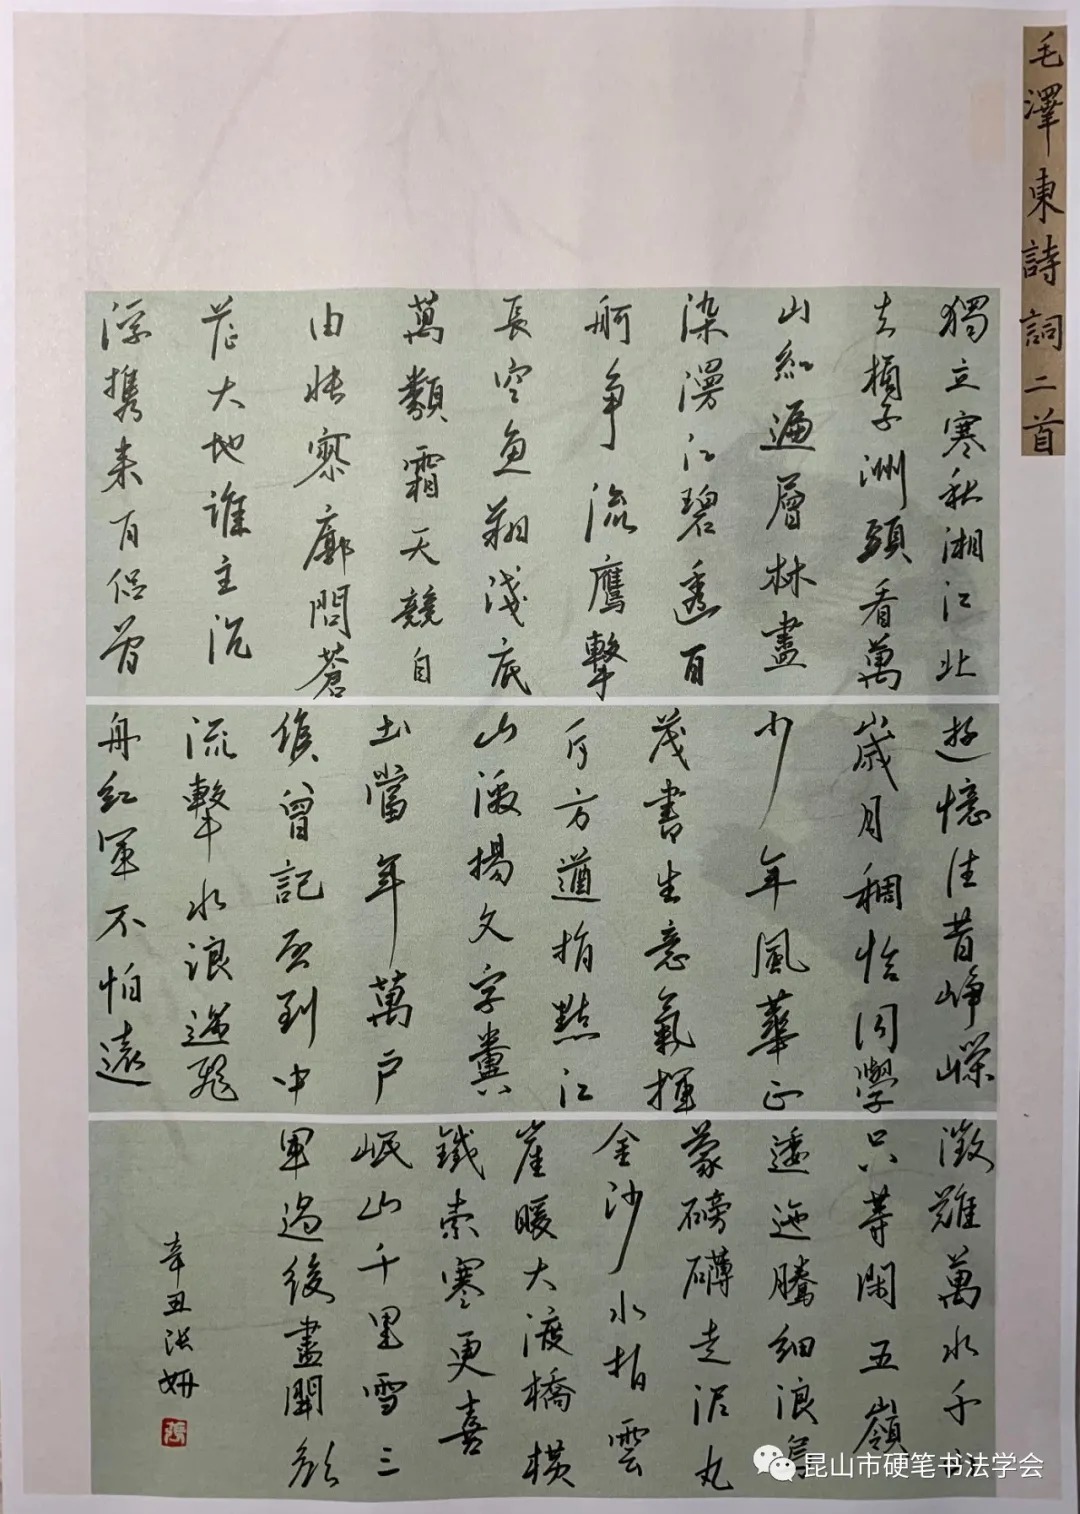 毛澤東詩詞二首
獨立寒秋湘江北
去橘子洲頭看萬
山紅遍層林盡
染漫江碧透百
舸争流鷹擊
長空魚翔淺底
萬類霜天競自
由悵寥廓問蒼
茫大地誰主沉
浮携來百侶曾
遊憶往昔崢嶸
歲月稠恰同學
少年風華正
茂書生意氣揮
斥方遒指點江
山激揚文字糞
土當年萬戶
侯曾記否到中
流擊水浪遏飛
舟紅軍不怕遠
徵難萬水千山
只等閑五嶺
逶迤騰細浪烏
蒙磅礴走泥丸
金沙水拍雲
崖暖大渡橋橫
鐵索寒更喜
岷山千里雪三
軍過後盡開顏
辛丑洪妍
昆山市硬笔书法学会